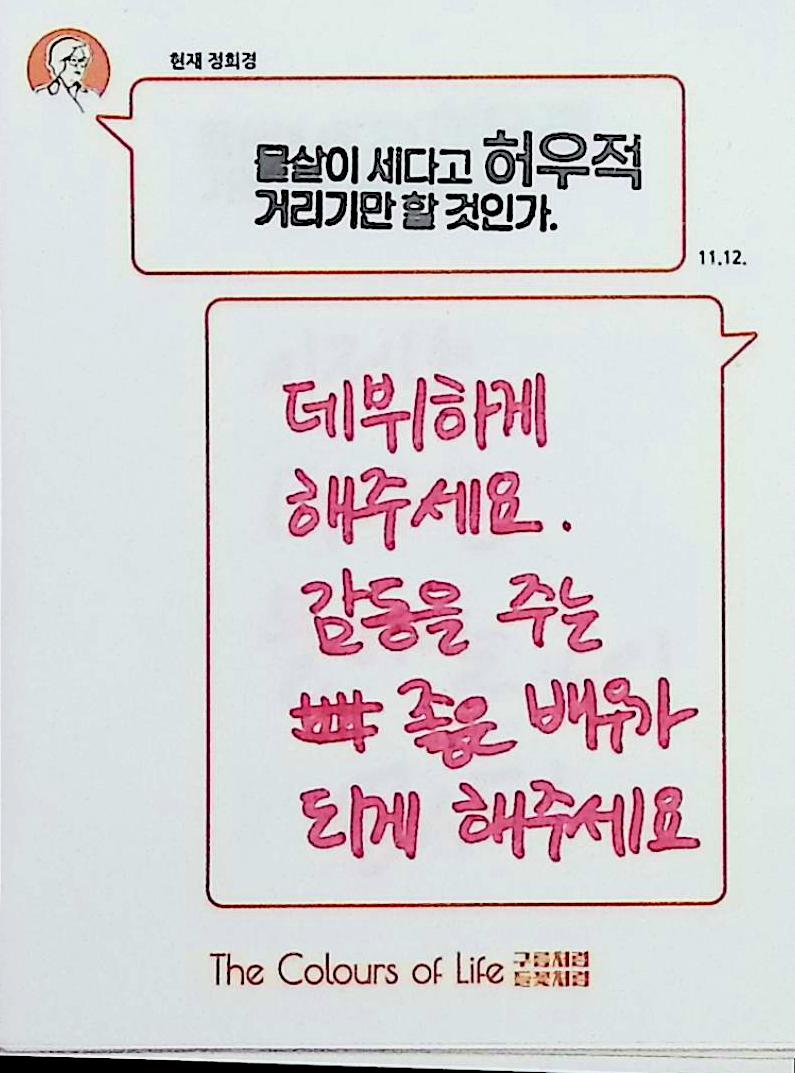 현재 정희경
물살이 세다고 허우적
거리기만 할 것인가.
11.12.
데뷔하게
해주세요.
감동을 주는
좋은 배우가
되게 해주세요
The Colours of Life 구름처럼
들꽃처럼